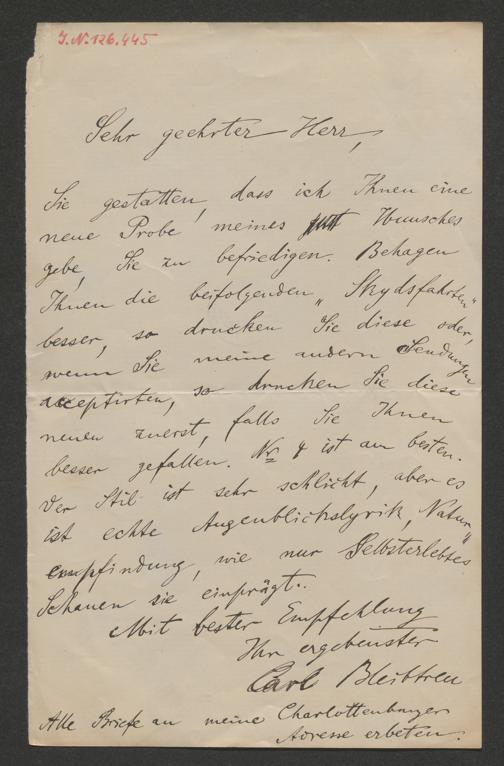 J.N. 126.445
Sehr geehrter Herr,
Sie gestatten, dass ich Ihnen eine
neue Probe meines Wunsches
gebe, Sie zu befriedigen. Behagen
Ihnen die beifolgenden „Skydsfahrten“
besser, so drucken Sie diese oder,
wenn Sie meine andern Sendungen
acceptirten, so drucken Sie diese
neuen zuerst, falls Sie Ihnen
besser gefallen. Nr 4 ist am besten.
Der Stil ist sehr schlicht, aber es
ist echte Augenblickslyrik, Natur-
empfindung, wie nur Selbsterlebtes
Schauen sie einprägt.
Mit bester Empfehlung
Ihr ergebenster
Carl Bleibtreu
Alle Briefe an meine Charlottenburger
Adresse erbeten.